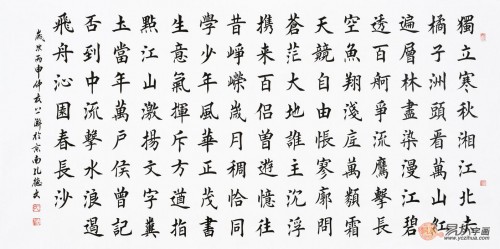 獨立寒秋湘江北去
橘子洲頭看萬山紅
遍層林盡染漫江碧
透百舸爭流鷹擊長
空魚翔淺底萬類霜
天競自由悵寥廓問
蒼茫大地誰主沉浮
攜來百侶曾遊憶往
昔崢嶸歲月稠恰同
學少年風華正茂書
生意氣揮斥方遒指
點江山激揚文字糞
土當年萬戶侯曾記
否到中流擊水浪遏
飛舟沁園春長沙
歲次丙申仲秋於京南
易从字画
www.yczihua.com